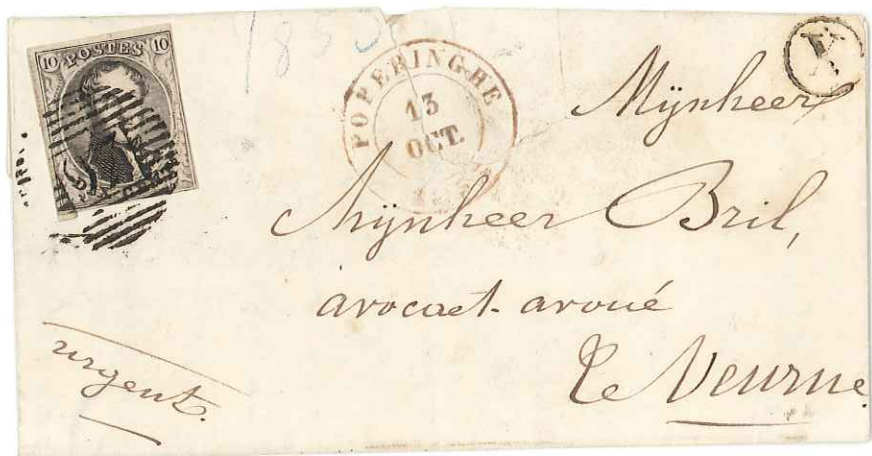 10 POSTES 10
1853
POPERINGHE
13
OCT.
X
Mijnheer
Mijnheer Bril,
avocaet-avoué
Te Veurne.
urgent.